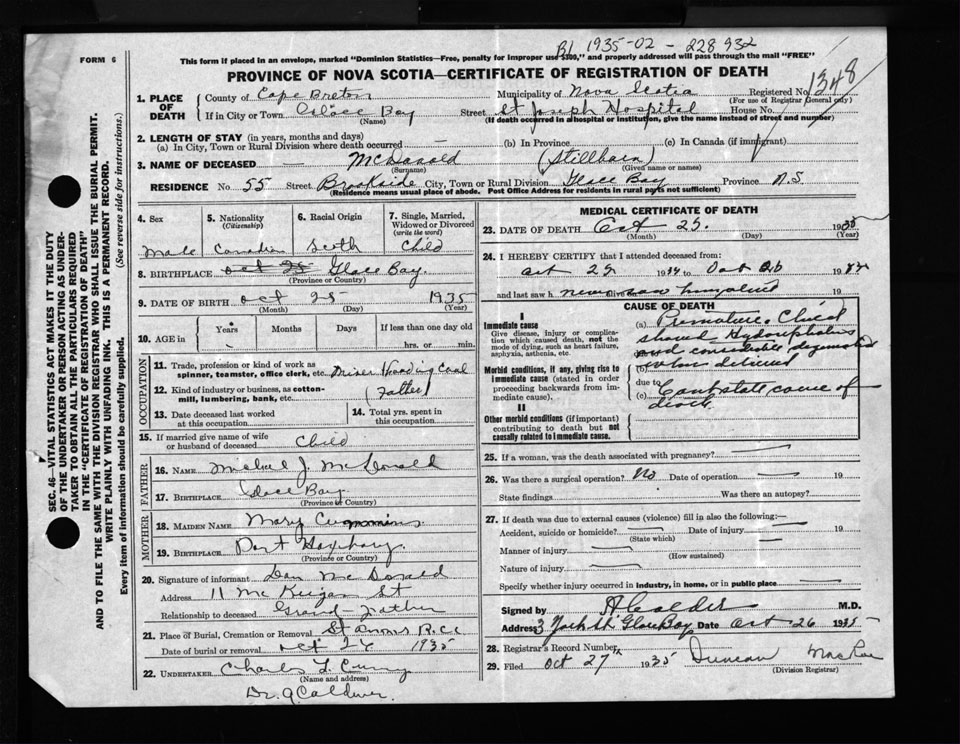 FORM 6
BL 1935-02-228932
This form if placed in an envelope, marked "Dominion Statistics—Free, penalty for improper use $300," and properly addressed will pass through the mail "FREE"
PROVINCE OF NOVA SCOTIA—CERTIFICATE OF REGISTRATION OF DEATH
1348
1. PLACE OF DEATH
County of Cape Breton Municipality of Nova Scotia Registered No.
(For use of Registrar General only)
If in City or Town Glace Bay Street St Joseph Hospital House No.
(Name) (If death occurred in a hospital or institution, give the name instead of street and number)
2. LENGTH OF STAY (in years, months and days)
(a) In City, Town or Rural Division where death occurred (b) In Province (c) In Canada (if immigrant)
3. NAME OF DECEASED McDonald (Stillborn)
(Surname) (Given name or names)
RESIDENCE No. 55 Street Brookside City, Town or Rural Division Glace Bay Province N.S.
(Residence means usual place of abode. Post Office Address for residents in rural parts not sufficient)
4. Sex 5. Nationality (Citizenship) 6. Racial Origin 7. Single, Married, Widowed or Divorced (write the word)
Male Canadian Scotch Child
8. BIRTHPLACE Oct 25 Glace Bay.
(Province or Country)
9. DATE OF BIRTH Oct 25 1935
(Month) (Day) (Year)
10. AGE in Years Months Days If less than one day old
hrs. or min.
OCCUPATION
11. Trade, profession or kind of work as spinner, teamster, office clerk, etc. Miner Loading Coal
12. Kind of industry or business, as cotton-mill, lumbering, bank, etc. (Father)
13. Date deceased last worked at this occupation
14. Total yrs. spent in this occupation
15. If married give name of wife or husband of deceased Child
FATHER
16. NAME Michael J. McDonald
17. BIRTHPLACE Glace Bay
(Province or Country)
MOTHER
18. MAIDEN NAME Mary Cummins
19. BIRTHPLACE Port Hawkesbury.
(Province or Country)
20. Signature of informant Dan McDonald
Address 11 McKeigan St
Relationship to deceased Grand-father
21. Place of Burial, Cremation or Removal St Anns R.C.
Date of burial or removal Oct 26 1935
22. UNDERTAKER Charles L. Curry
(Name and address)
MEDICAL CERTIFICATE OF DEATH
23. DATE OF DEATH Oct 25. 1935
(Month) (Day) (Year)
24. I HEREBY CERTIFY that I attended deceased from:
Oct 25 19 to Oct 19
and last saw h never saw alive on 19
CAUSE OF DEATH
I
Immediate cause
Give disease, injury or complication which caused death, not the mode of dying, such as heart failure, asphyxia, asthenia, etc.
Morbid conditions, if any, giving rise to immediate cause (stated in order proceeding backwards from immediate cause).
II
Other morbid conditions (if important) contributing to death but not causally related to immediate cause.
(a) Premature Child
showed Hydrocephalus
and considerable
(b) when delivered
due to
(c) Cant state cause of
death.
25. If a woman, was the death associated with pregnancy?
26. Was there a surgical operation? No Date of operation 19
State findings Was there an autopsy?
27. If death was due to external causes (violence) fill in also the following:—
Accident, suicide or homicide? Date of injury 19
(State which)
Manner of injury
(How sustained)
Nature of injury
Specify whether injury occurred in industry, in home, or in public place
Signed by A Calder M.D.
Address 3 York St. Glace Bay Date Oct 26 1935
28. Registrar's Record Number
29. Filed Oct 27 1935 Duncan MacRae
(Division Registrar)
SEC. 46—VITAL STATISTICS ACT MAKES IT THE DUTY
OF THE UNDERTAKER OR PERSON ACTING AS UNDER-
TAKER "TO OBTAIN ALL THE PARTICULARS REQUIRED
IN THE "CERTIFICATE OF REGISTRATION OF DEATH"
AND TO FILE THE SAME WITH THE DIVISION REGISTRAR WHO SHALL ISSUE THE BURIAL PERMIT.
WRITE PLAINLY WITH UNFADING INK. THIS IS A PERMANENT RECORD.
Every item of information should be carefully supplied. (See reverse side for instructions.)